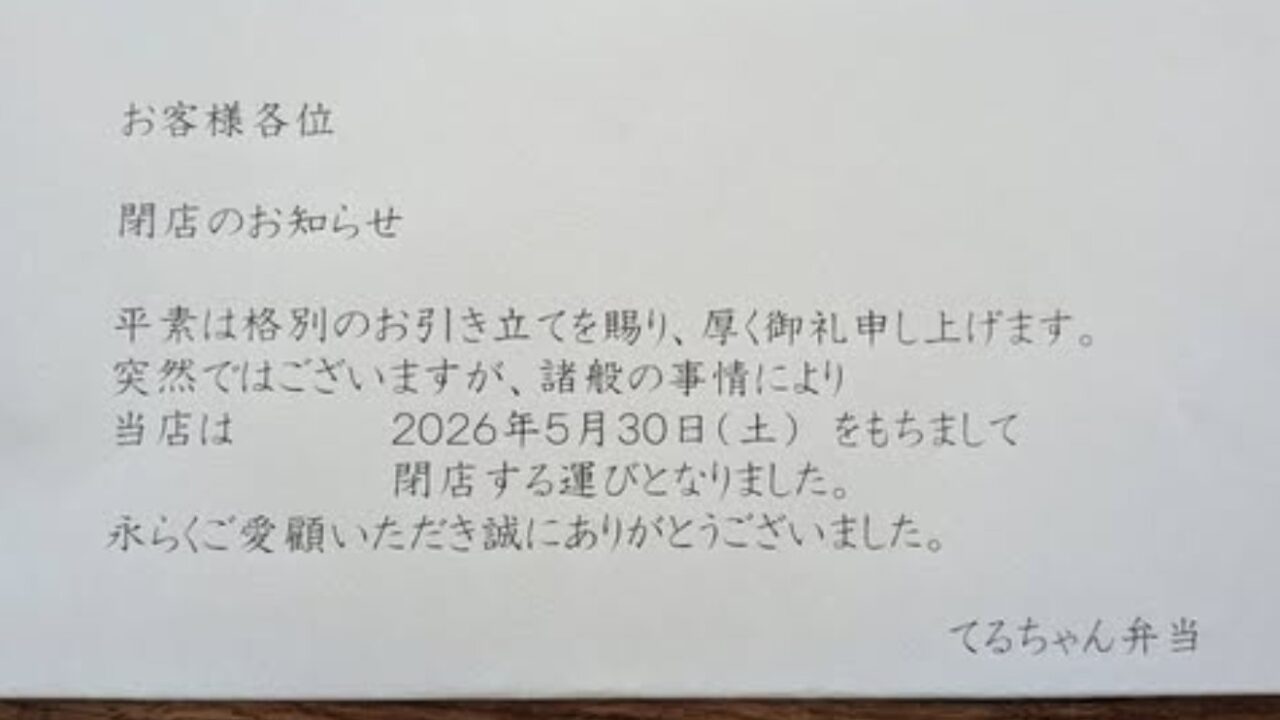 お客様各位
閉店のお知らせ
平素は格別のお引き立てを賜り、厚く御礼申し上げます。
突然ではございますが、諸般の事情により
当店は 2026年5月30日(土) をもちまして
閉店する運びとなりました。
永らくご愛顧いただき誠にありがとうございました。
てるちゃん弁当